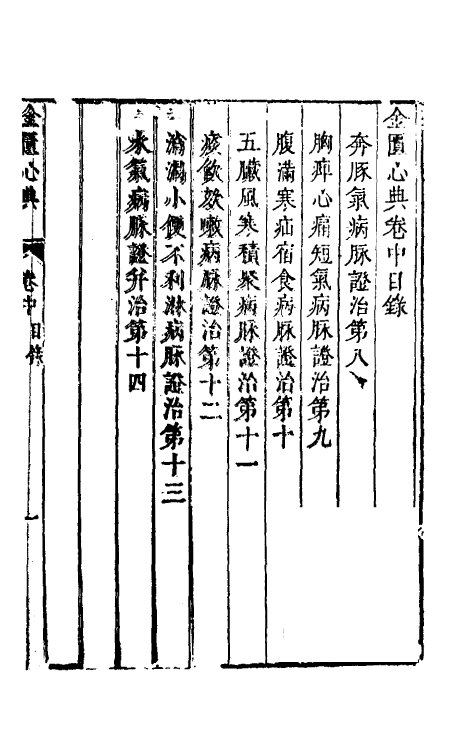 金匱心典卷中目錄
奔豚氣病脉證治第八
胸痺心痛短氣病脉證治第九
腹滿寒疝宿食病脉證治第十
五臟風寒積聚病脉證治第十一
痰飲欬嗽病脉證治第十二
消渴小便不利淋病脉證治第十三
水氣病脉證并治第十四
金匱心典
卷中目錄
一